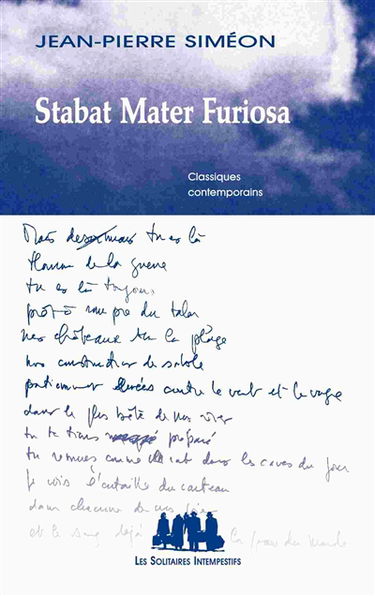 JEAN-PIERRE SIMÉON
Stabat Mater Furiosa
Classiques
contemporains
Mais desormais tu es là
Homme de la guerre
tu es là toujours
prêt à rompre du talon
nos châteaux sur la plage
nos constructions de sable
patiemment élevées contre le vent et la vague
dans le plus bête de nos rires
tu te tiens préparé
tu remues comme un rat dans les caves du jour
je vois l'entaille du couteau
dans chacune de nos joies
et le sang déjà
LES SOLITAIRES INTEMPESTIFS